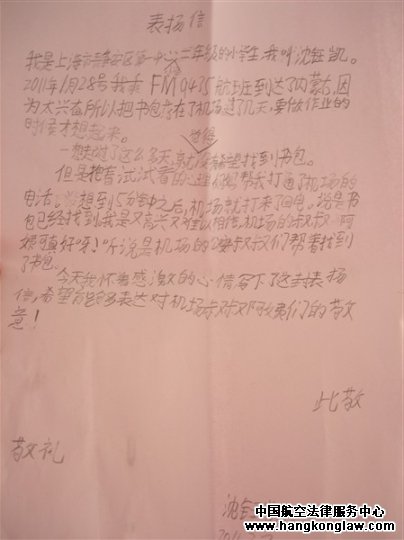 表扬信
我是上海市静安区第一中心小二年级的小学生我叫沈钰凯。
2011年1月28号我乘FM9435航班到达了内蒙古,因
为大兴奋所以把书包存在了机场过了几天,要做作业的
时候才想起来。
觉得
一想过了这么多天,就没希望找到书包。
但是抱着试试看的心理妈妈帮我打通了机场的
电话,没想到5分钟之后,机场就打来了回电,说是书
包已经找到,我是又高兴又难以相信,机场的叔叔阿
姨真好呀!听说是机场的叔叔们帮着找到
了书包。
今天我怀着感激的心情写下了这封表扬
信,希望能够表达对机场叔叔阿姨们的敬
意!
此敬
敬礼
沈钰
2011.2.
中国航空法律服务中心
www.hangkonglaw.com